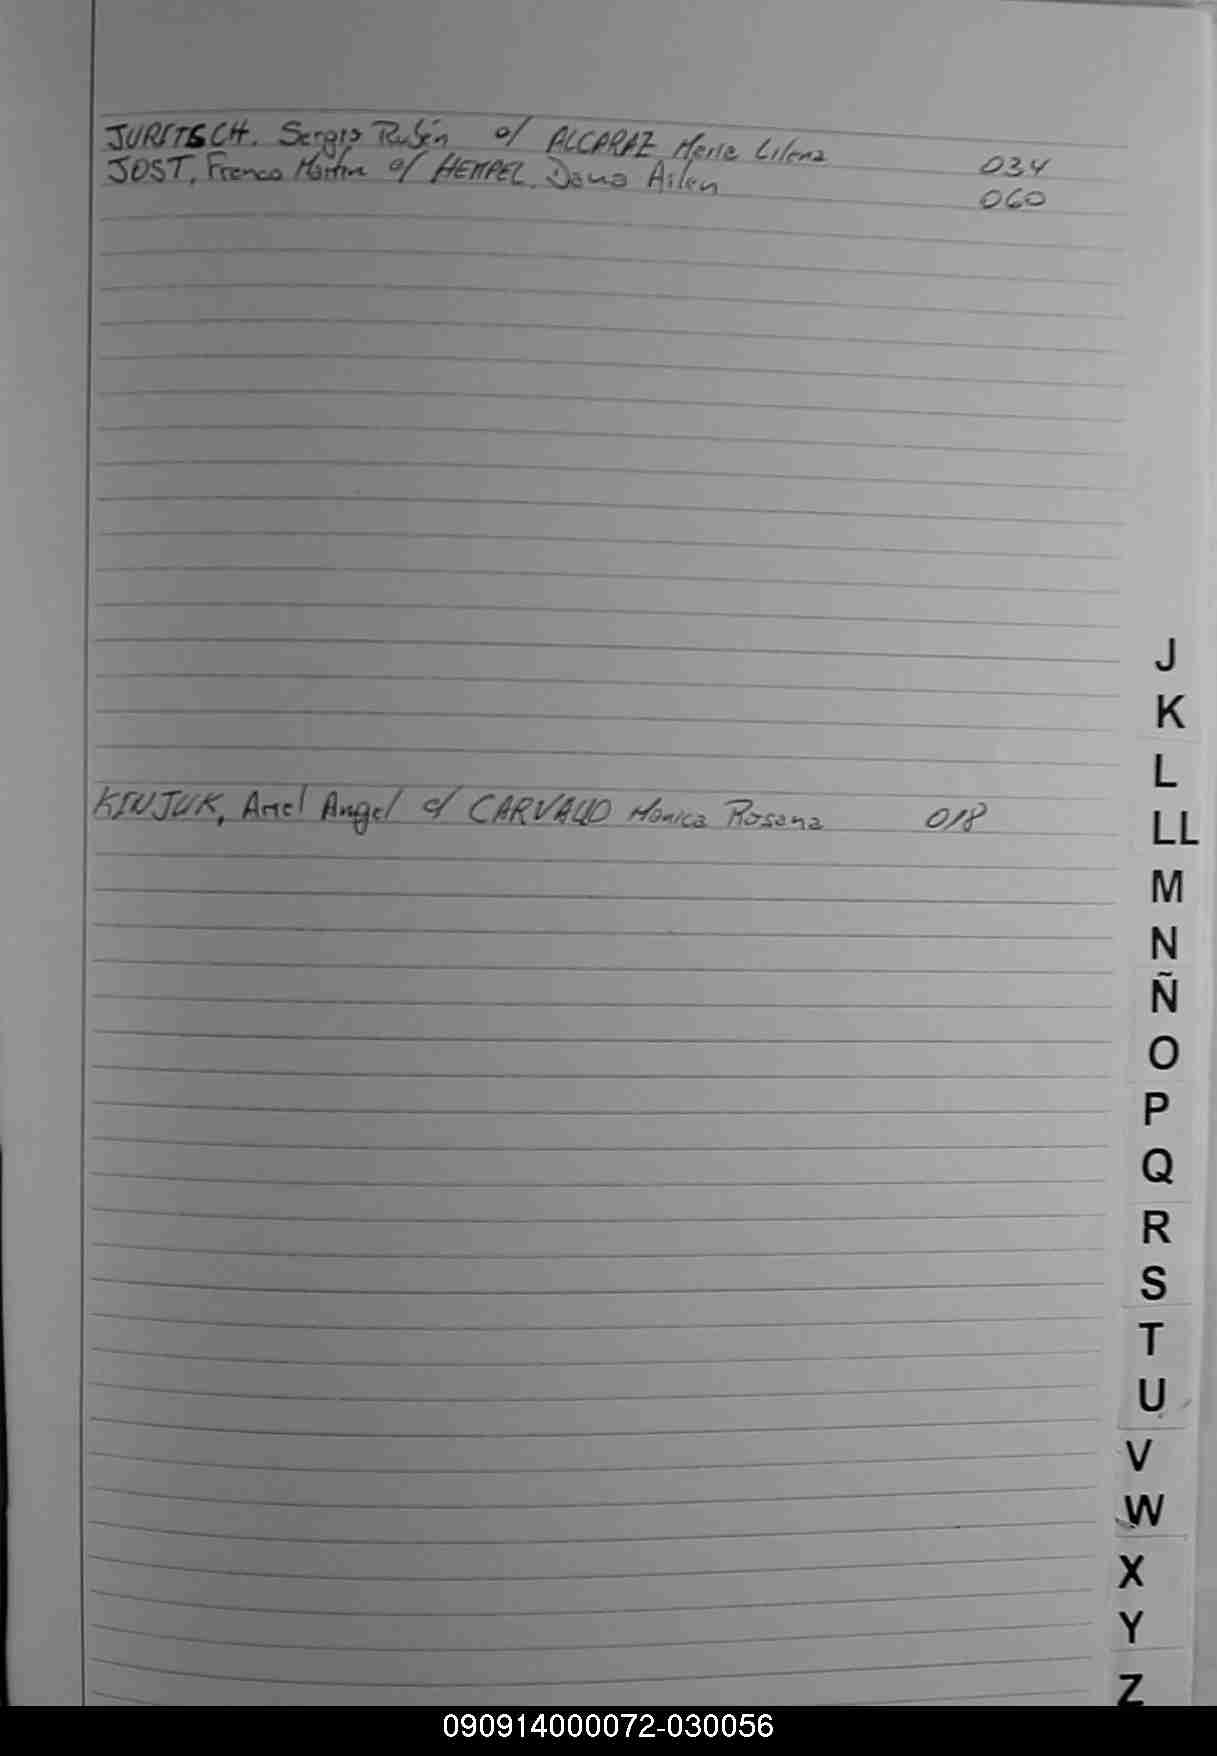 JURITSCH. Sergio Rubén c/ ALCARAZ Maria Liliana 034
JOST, Franco Martin c/ HEMPEL, Dana Ailen 060
KINJUK, Ariel Angel c/ CARVALLO Monica Rosana 018
J
K
L
LL
M
N
Ñ
O
P
Q
R
S
T
U
V
W
X
Y
Z
090914000072-030056